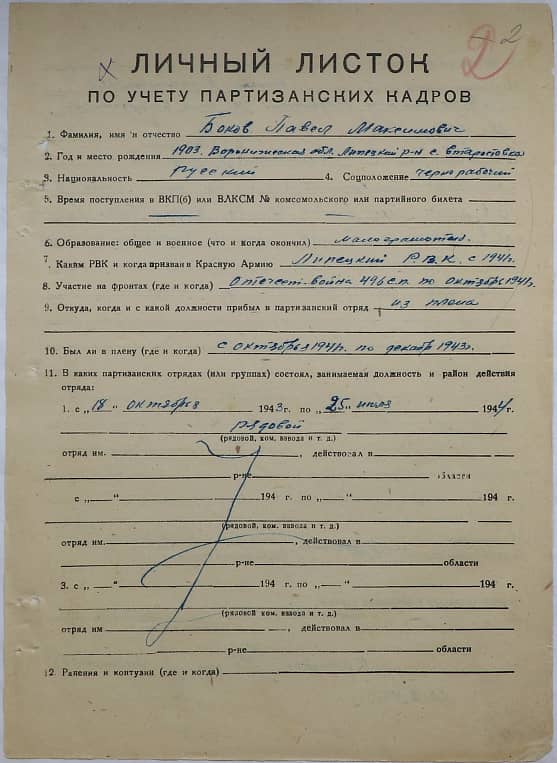 2 2
ЛИЧНЫЙ ЛИСТОК
ПО УЧЕТУ ПАРТИЗАНСКИХ КАДРОВ
1. Фамилия, имя и отчество Боков Павел Максимович
2. Год и место рождения 1903. Воронежская обл. Липецкий р-н с.
3. Национальность Русский 4. Соцположение чернорабочий
5. Время поступления в ВКП(б) или ВЛКСМ № комсомольского или партийного билета
6. Образование: общее и военное (что и когда окончил) малограмотен.
7. Каким РВК и когда призван в Красную Армию Липецкий Р.В.К. с 1941г.
8. Участие на фронтах (где и когда) Отечест-война 496 с.п. по октябрь 1941г.
9. Откуда, когда и с какой должности прибыл в партизанский отряд из плена
10. Был ли в плену (где и когда) с октября 1941г. по декабр 1943г.
11. В каких партизанских отрядах (или группах) состоял, занимаемая должность и район действия
отряда:
1. с „18" октября 1943г. по „25" июля 1944г.
рядовой
(рядовой, ком. взвода и т. д.)
отряд им. , действовал в
р-не области
с „ " 194 г. по „ " 194 г.
(рядовой, ком. взвода и т. д.)
отряд им. , действовал в
р-не области
3. с „ " 194 г. по „ " 194 г.
(рядовой ком. взвода и т. д.)
отряд им , действовал в
р-не области
12. Ранения и контузии (где и когда)